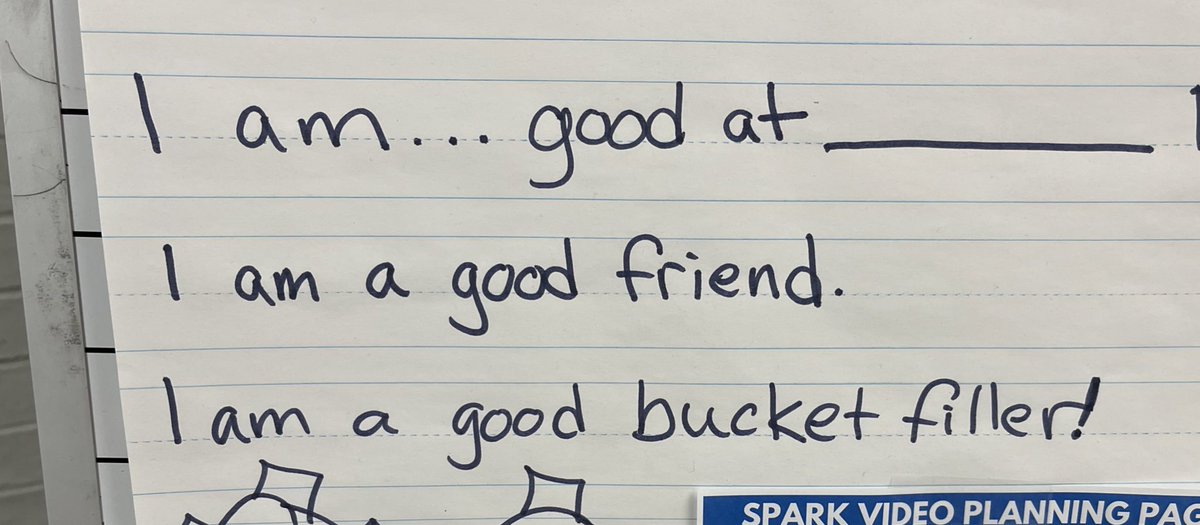 I am... good at __________
I am a good friend.
I am a good bucket filler!
SPARK VIDEO PLANNING